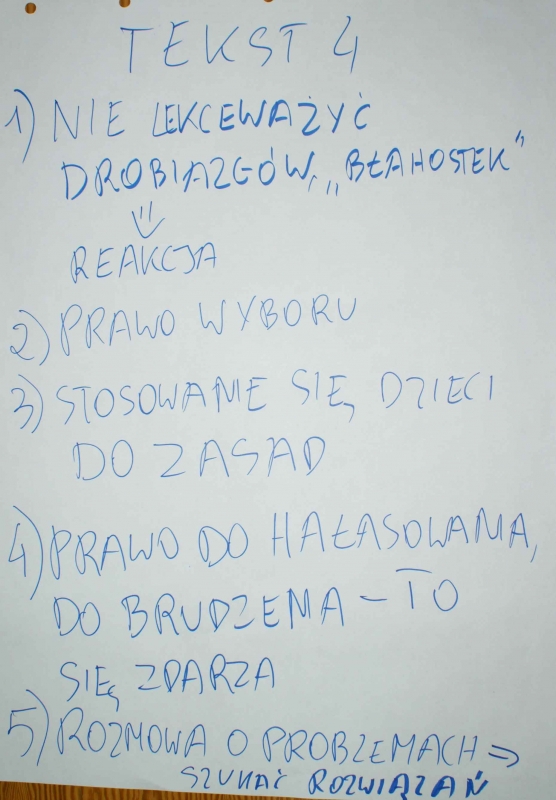 TEKST 4
1) NIE LEKCEWAŻYĆ
DROBIAZGÓW, „BŁAHOSTEK"
⇓
REAKCJA
2) PRAWO WYBORU
3) STOSOWANIE SIĘ DZIECI
DO ZASAD
4) PRAWO DO HAŁASOWANIA,
DO BRUDZENIA – TO
SIĘ ZDARZA
5) ROZMOWA O PROBLEMACH ⇒
SZUKAĆ ROZWIĄZAŃ